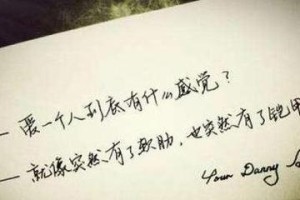 — 爱一个人到底有什么感觉?
— 就像突然有了软肋,也突然有了铠甲
Your Danny